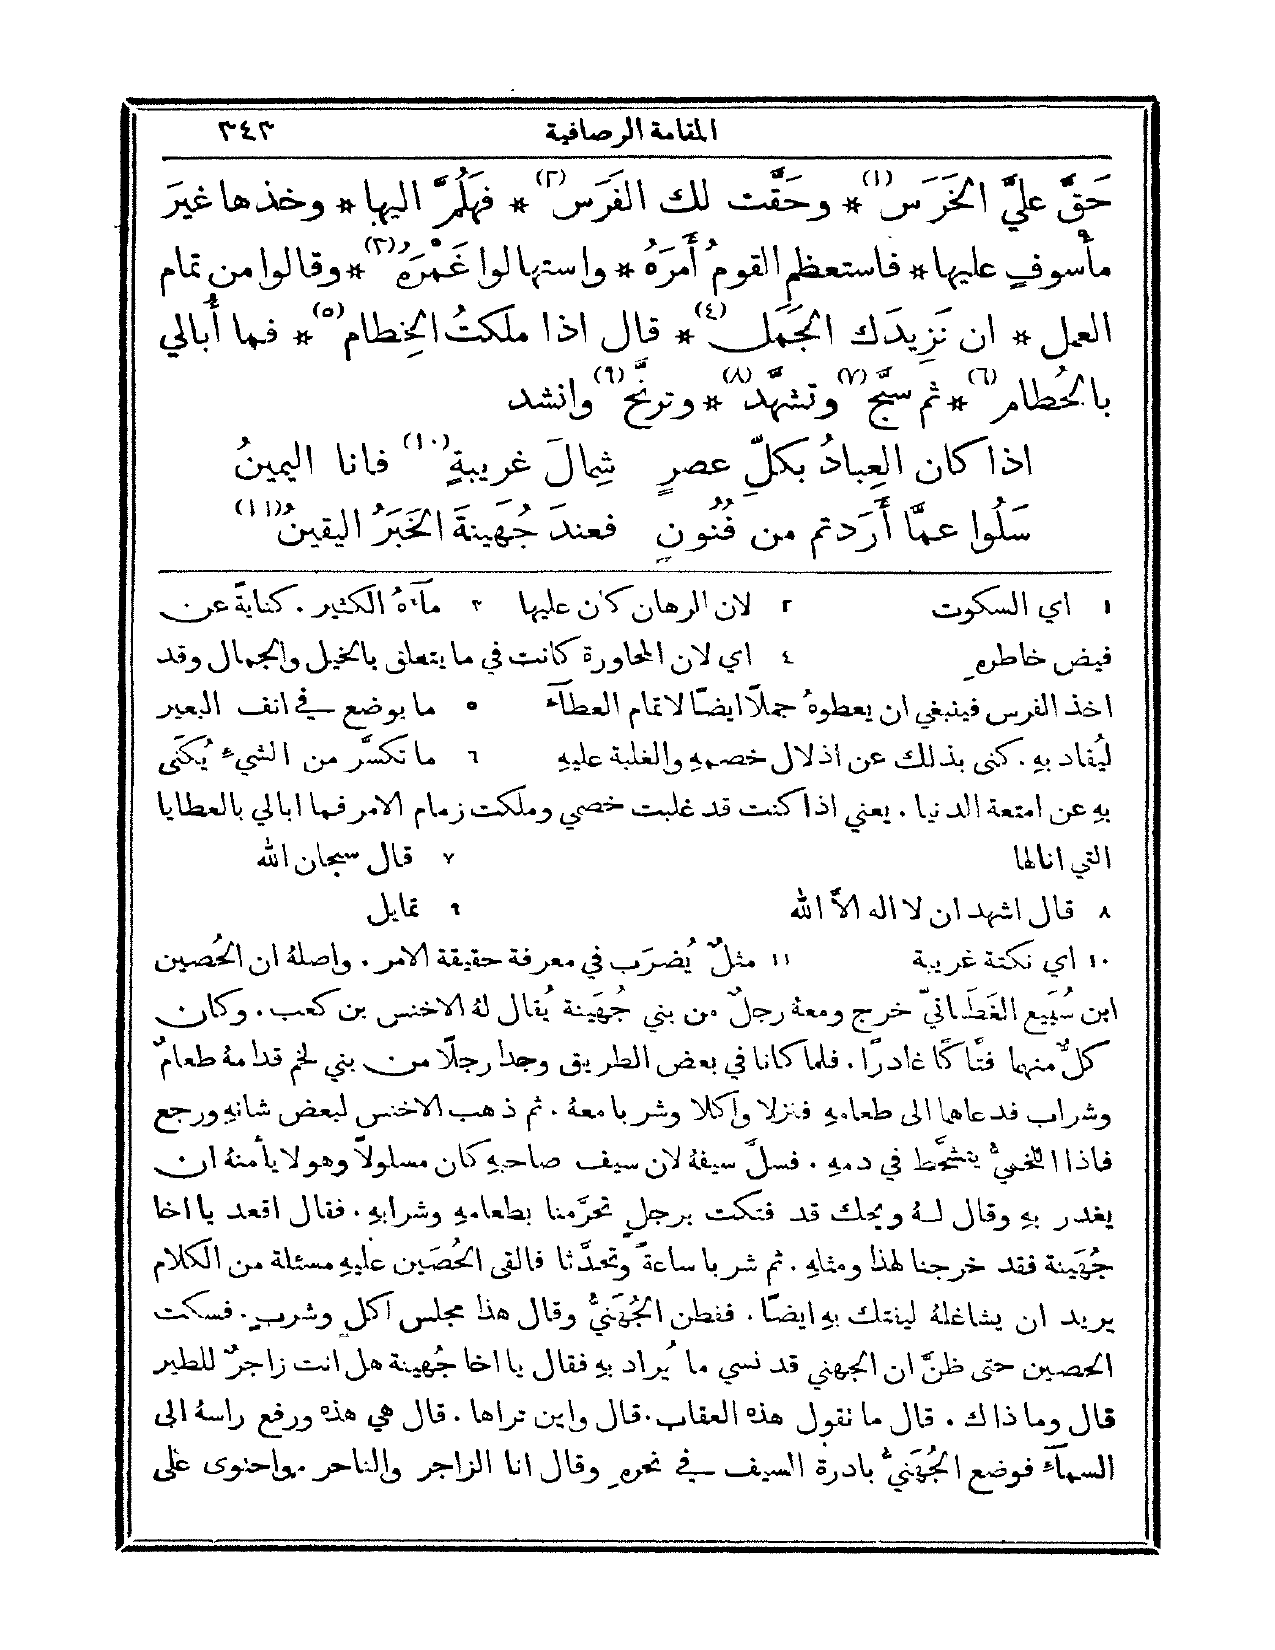 المقامة الرصافية ٣٤٣
حَقَّ عليَّ الخَرَس(١) * وحَقَّت لك الفَرَس(٢) * فهَلُمَّ اليها * وخذها غيرَ
مأسوفٍ عليها * فاستعظم القومُ أَمرَهُ * واستهالوا غَمْرَهُ(٣) * وقالوا من تمام
العمل * ان نَزِيدَك الجَمَل(٤) * قال اذا ملكتُ الخِطام(٥) * فما أُبالي
بالحُطام(٦) * ثم سبَّح(٧) وتشهَّد(٨) * وترنَّح(٩) وانشد
اذا كان العِبادُ بكلِّ عصرٍ شِمالَ غريبةٍ(١٠) فانا اليمينُ
سَلُوا عمَّا أَرَدتم من فُنُونٍ فعندَ جُهَينةَ الخَبَرُ اليقينُ(١١)
١ اي السكوت ٢ لان الرهان كان عليها ٣ مآءهُ الكثير. كنايةً عن
فيض خاطرهِ ٤ اي لان المحاورة كانت في ما يتعلق بالخيل والجمال وقد
اخذ الفرس فينبغي ان يعطوهُ جملاً ايضًا لاتمام العطآء ٥ ما يوضع في انف البعير
ليُقاد بهِ. كنى بذلك عن اذلال خصمهِ والغلبة عليهِ ٦ ما تكسَّر من الشيء يُكنَى
بهِ عن امتعة الدنيا. يعني اذا كنت قد غلبت خصمي وملكت زمام الامر فما ابالي بالعطايا
التي انالها ٧ قال سبحان الله
٨ قال اشهد ان لا اله الاَّ الله ٩ تمايل
١٠ اي نكتة غريبة ١١ مثلٌ يُضرَب في معرفة حقيقة الامر. واصلهُ ان الحُصين
ابن سُبَيع الغَطَفانيّ خرج ومعهُ رجلٌ من بني جُهَينة يُقال لهُ الاخنس بن كعب. وكان
كلٌّ منهما فتَّاكًا غادرًا. فلما كانا في بعض الطريق وجدا رجلاً من بني لخم قدامهُ طعامٌ
وشراب فدعاهما الى طعامهِ فنزلا وأكلا وشربا معهُ. ثم ذهب الاخنس لبعض شانهِ ورجع
فاذا اللخميُّ يتشحَّط في دمهِ. فسلَّ سيفهُ لان سيف صاحبهِ كان مسلولاً وهو لا يأمنهُ ان
يغدر بهِ وقال لهُ ويحك قد فتكت برجلٍ تحرَّمنا بطعامهِ وشرابهِ. فقال اقعد يا اخا
جُهَينة فقد خرجنا لهذا ومثلهِ. ثم شربا ساعةً وتحدَّثا فالقى الحُصَين عليهِ مسئلة من الكلام
يريد ان يشاغلهُ ليفتك بهِ ايضًا. ففطن الجُهَنيُّ وقال هذا مجلس اكلٍ وشربٍ. فسكت
الحصين حتى ظنَّ ان الجهني قد نسي ما يُراد بهِ فقال يا اخا جُهينة هل انت زاجرٌ للطير
قال وما ذاك. قال ما تقول هذه العقاب. قال واين تراها. قال هي هذه ورفع راسهُ الى
السمآء فوضع الجُهَنيُّ بادرة السيف في نحرهِ وقال انا الزاجر والناحر. واحتوى على